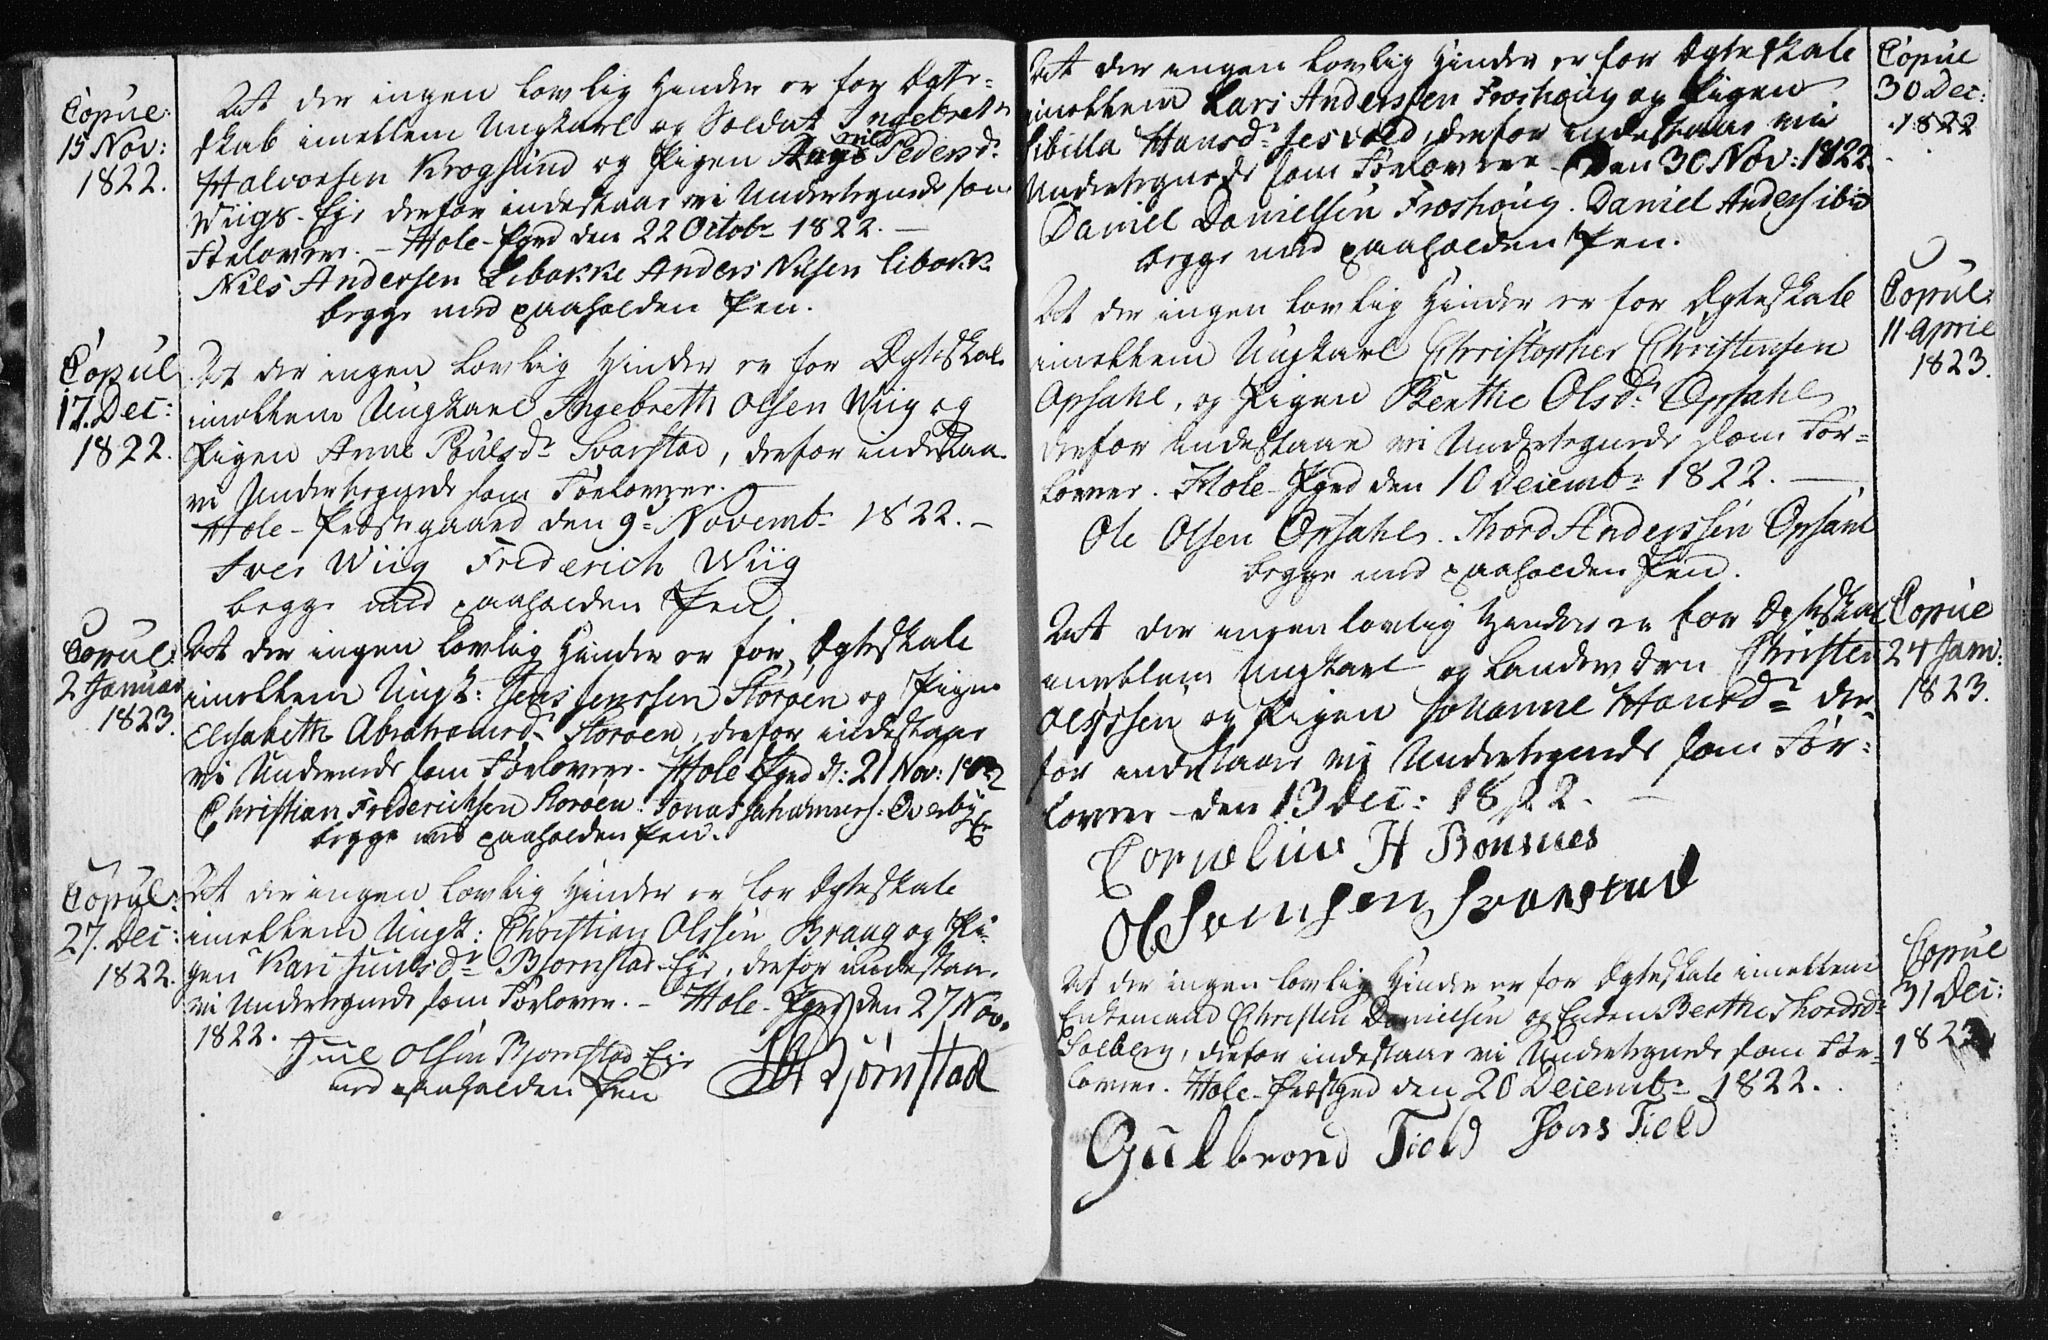 Copul:
15 Nov:
1822.
At der ingen lovlig Hinder er for Ægte-
skab imellem Ungkarl og Soldat Ingebreth
Halvorsen Krogsund og Pigen Pedersdr
Wiigs-Eje derfor indestaar vi Undertegnede som
Forlovere. – Hole-Pgrd den 22 Octobr 1822. –
Niels Andersen Libakke Anders Nilsen Libakk
begge med paaholden Pen.
Copul
17. Dec:
1822.
At der ingen lovlig Hinder er for Ægteskab
imellem Ungkarl Ingebreth Olsen Wiig og
Pigen Anne Poulsdr Svarstad, derfor indestaar
vi Undertegnede som Forlovere. –
Hole-Præstegaard den 9de Novembr 1822. –
Iver Wiig Frederich Wiig
begge med paaholden Pen
Copul:
2 Januar
1823.
At der ingen lovlig Hinder er for Ægteskab
imellem Ungk: Jens Jenssen Storøen og Pigen
Elisabeth Abrahamsdr Storøen, derfor indestaar
vi Undernede som Forlovere. Hole Pgrd d: 21 Nov: 1822
Christian Frederichsen Storøen. Jonas Johannes: Overby Ej
begge med paaholden Pen.
Copul:
27. Dec:
1822.
At der ingen lovlig Hinder er for Ægteskab
imellem Ungk: Christian Olssen Braag og Pi-
gen Kari Juulsdr Bjørnstad-Eje, derfor indestaar
vi Undertegnede som Forlovere. – Hole-Pgrd den 27 Nov.
1822.
Juul Olsen Bjornstad Eje
med paaholden Pen
Bjørnstad
At der ingen lovlig Hinder er for Ægteskab
imellem Lars Anderssen Froshoug og Pigen
Sibilla Hansdr Jesvold, derfor indestaar vi
Undertegnede som Forlovere – Den 30 Nov: 1822.
Daniel Danielsen Froshoug. Daniel Anders ibid
begge med paaholden Pen.
Copul
30 Dec:
1822
At der ingen lovlig Hinder er for Ægteskab
imellem Ungkarl Christopher Christensen
Opsahl, og Pigen Berthe Olsdr Opsahl,
derfor indestaar vi Undertegnede som For-
lovere. Hole-Pgrd den 10 Decembr 1822. –
Ole Olsen Opsahl. Thord Anderssen Opsahl
begge med paaholden Pen.
Copul:
11 April
1823.
At der ingen lovlig Hinder er for Ægteskab
imellem Ungkarl og Landværn Christen
Olssen og Pigen Johanne Hansdr der-
for indestaar vi Undertegnede som For-
lovere – den 13 Dec: 1822. –
Cornelius H Bonsnes
Ol Svensen Svarstad
Copul
24 Janv:
1823.
At der ingen lovlig Hinder er for Ægteskab imellem
Enkemand Christen Danielsen og Enken Berthe Thordsdr
Solberg, derfor indestaar vi Undertegnede som For-
lovere. Hole-Præstgrd den 20 Decembr 1822.
Gulbrand Field Hans Field
Copul
31 Dec:
1823